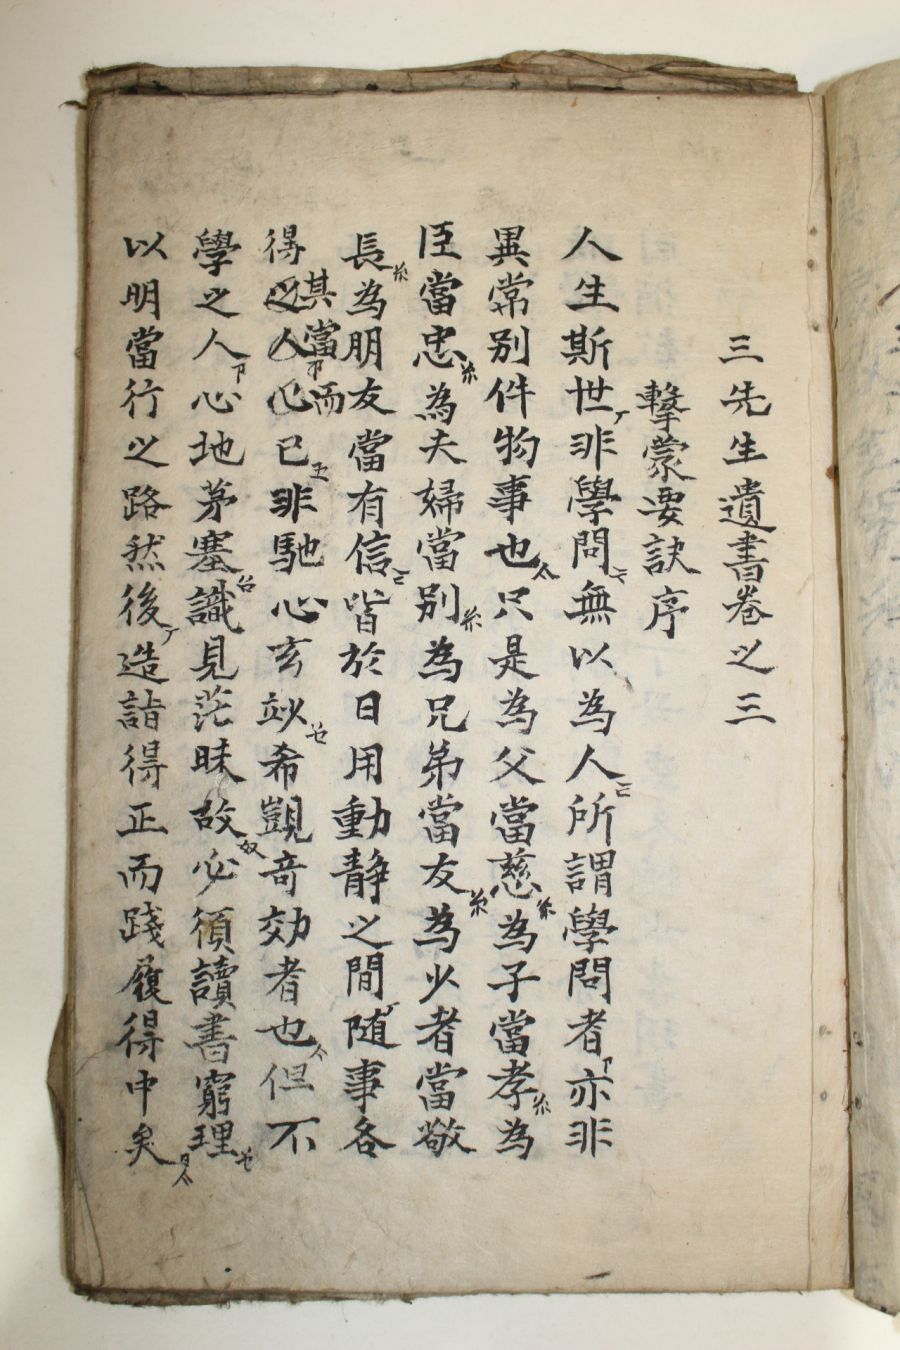 三先生遺書卷之三
擊蒙要訣序
人生斯世非學問無以為人所謂學問者亦非
異常別件物事也只是為父當慈為子當孝為
臣當忠為夫婦當別為兄弟當友為少者當敬
長為朋友當有信皆於日用動静之間随事各
得其當而已非馳心玄妙希覬奇効者也但不
學之人心地茅塞識見茫昧故必須讀書窮理
以明當行之路然後造詣得正而踐履得中矣